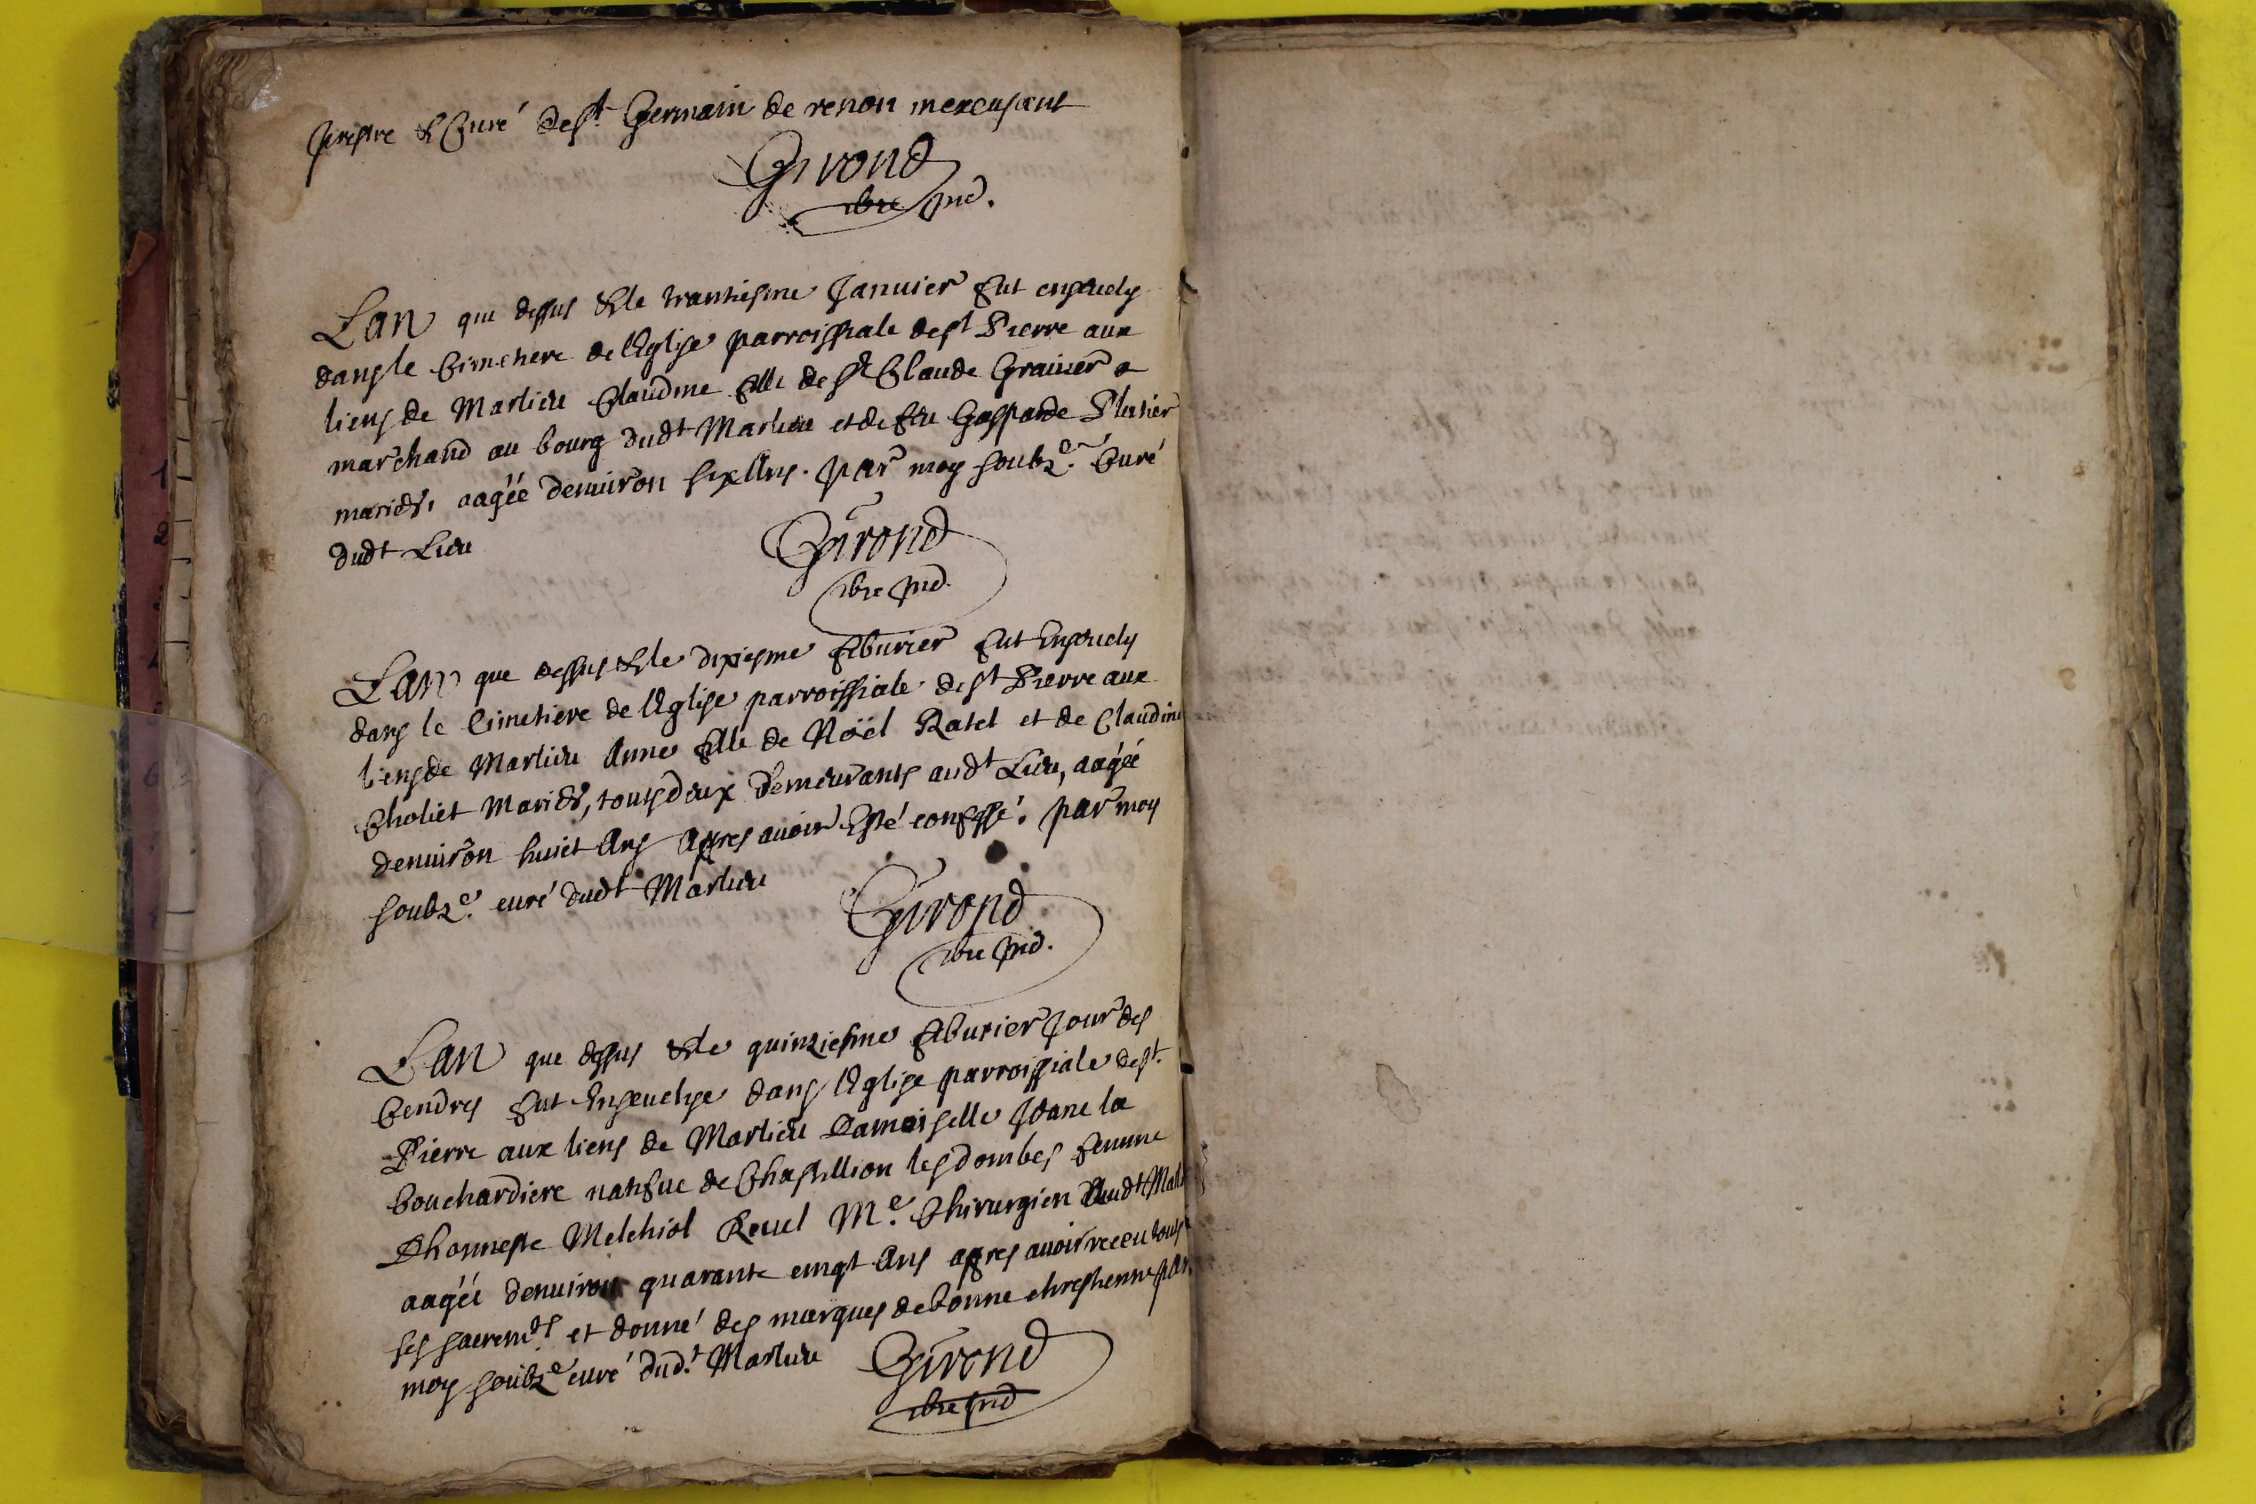 prestre & Curé de st. Germain de renon mexcusant
Girond
pbre ind.
Lan que dessus & le trantiesme Januier fut enseuely
dans le Cimetiere de lEglise parroissiale de st Pierre aux
liens de Marlieu Claudine fille de sr Claude Grainer
marchand au bourg dudt Marlieu et de feu Gasparde
mariés, aagée denuiron six Ans. par moy soubz.é Curé
dudt Lieu
Girond
pbre ind.
Lan que dessus & le dixiesme feburier fut Enseuely
dans le Cimetiere de lEglise parroissiale de st Pierre aux
liens de Marlieu Anne fille de Noël Ratel et de Claudine
Choliet Mariés, tous deux demeurants audt Lieu, aagée
denuiron huict Ans Apres auoir Esté confessé. par moy
soubz.é curé dudt Marlieu
Girond
pbre ind.
Lan que dessus & le quinziesme feburier Jour des
Cendres fut Enseuelye dans lEglise parroissiale de st.
Pierre aux liens de Marlieu Damoiselle Jeane la
bouchardiere natifue de Chastillion les dombes femme
Dhonneste Melchiol Reuel Me. Chirurgien dudt
aagée denuiron quarante cinqt Ans apres auoir receu tous
ses sacremts. et donné des marques de bonne chrestienne par
moy soubzé curé dud.t Marlieu
Girond
pbre ind
1
2
6